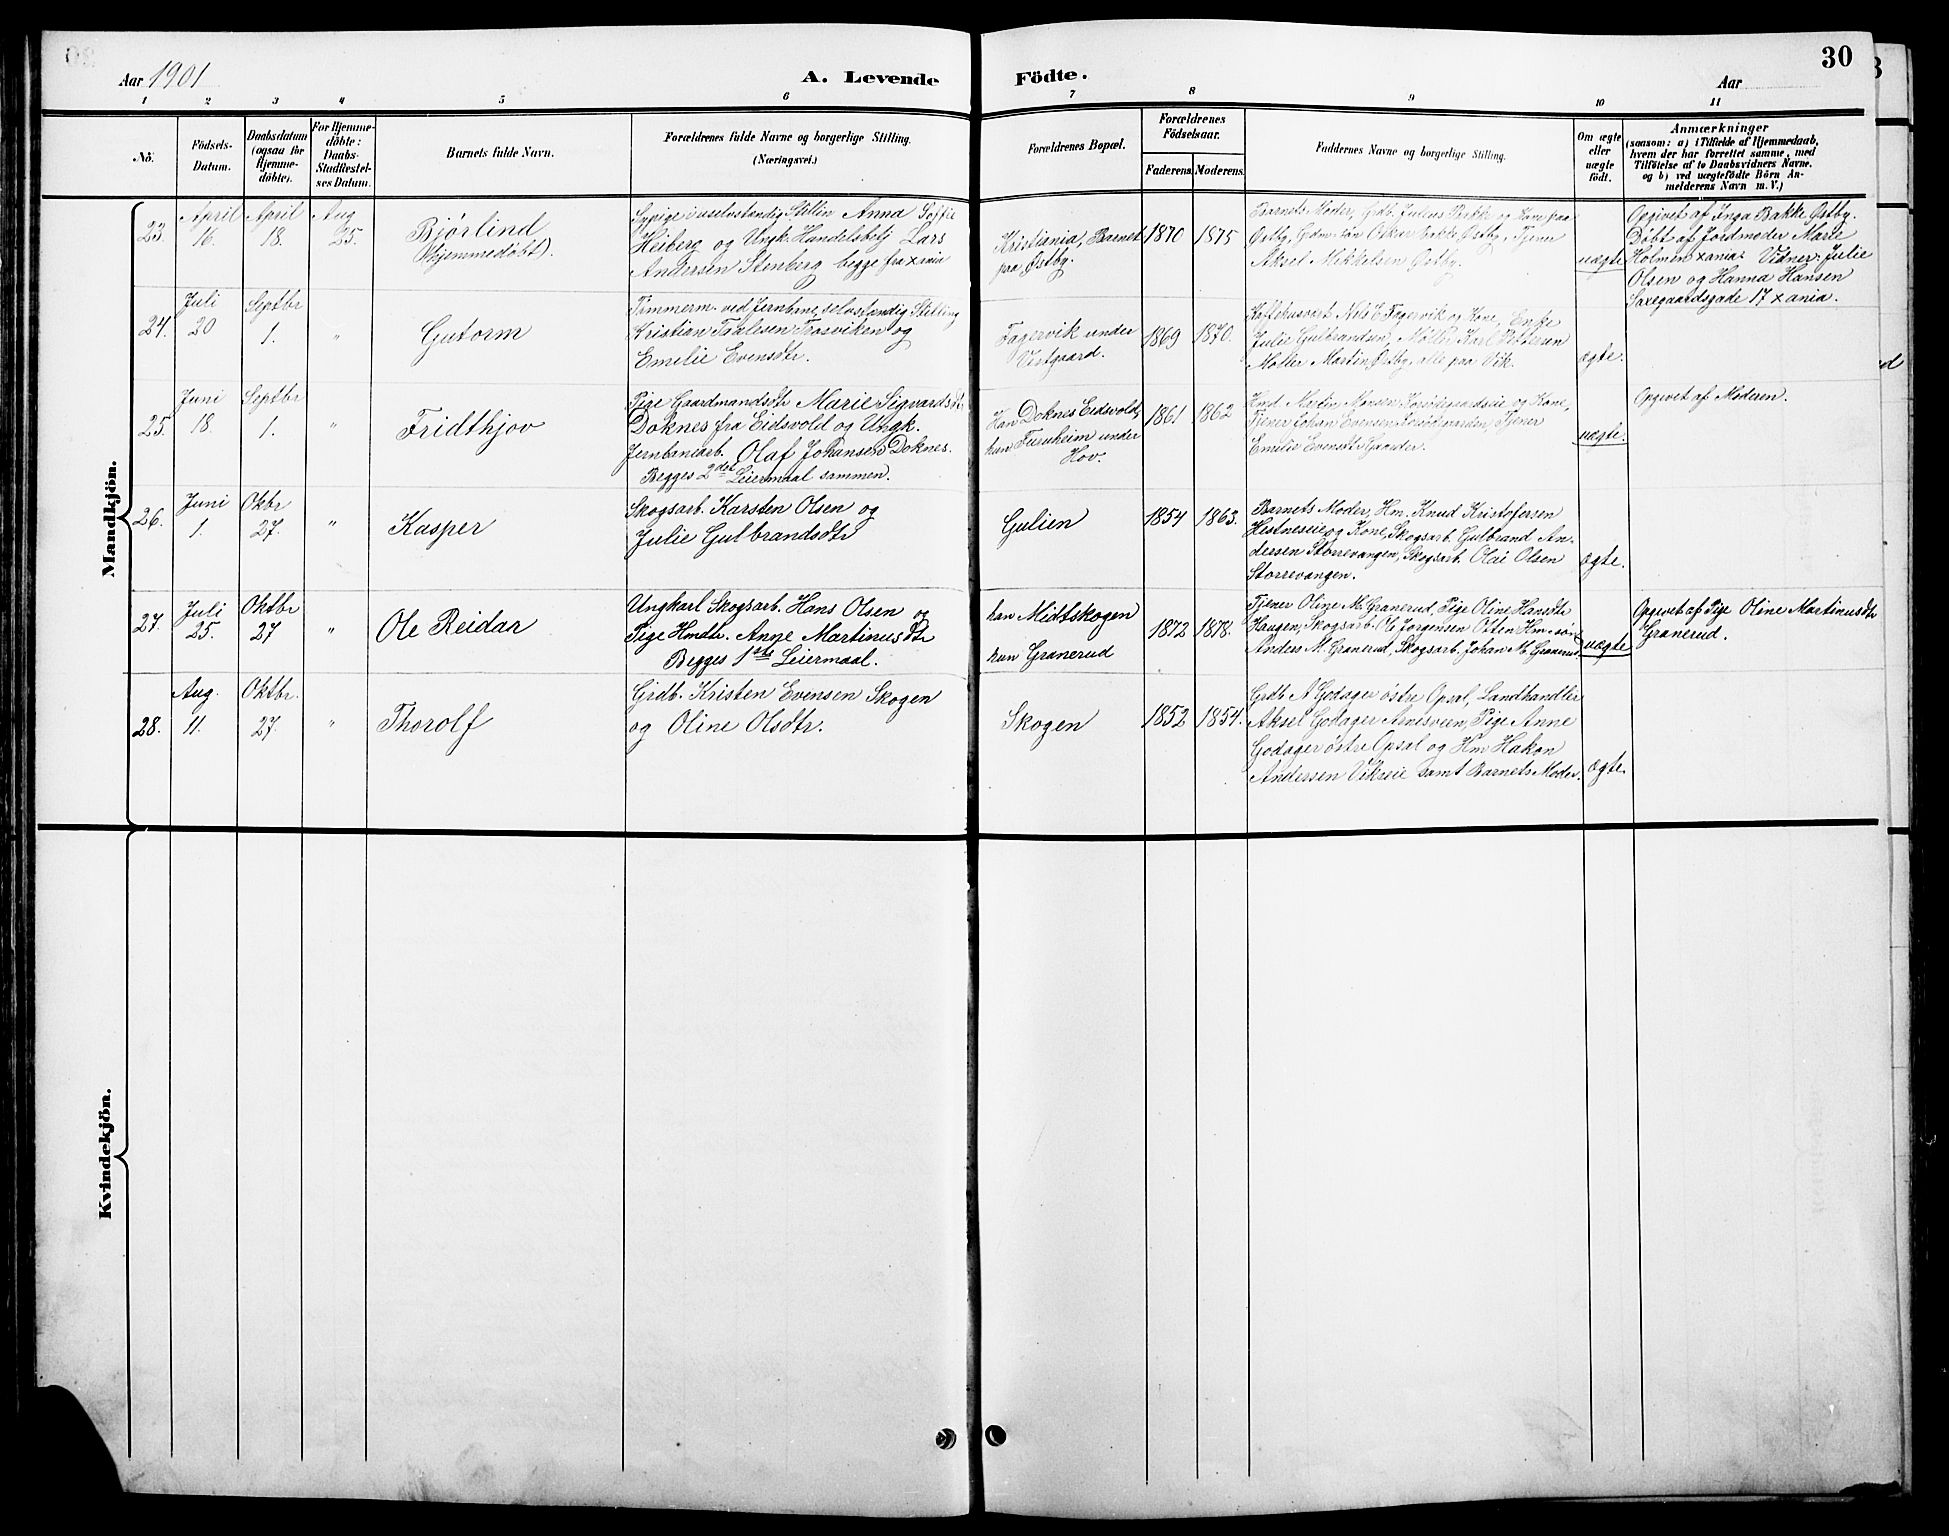 30
Aar 1901
A. Levende
Födte.
Aar
1 2 3 4 5 6 7 8 9 10 11
No.
Födsels-
Datum.
Daabsdatum
(ogsaa for
Hjemme-
döbte).
For Hjemme-
döbte:
Daabs-
Stadfæstel-
ses Datum.
Barnets fulde Navn.
Forældrenes fulde Navne og borgerlige Stilling.
(Næringsvei.)
Forældrenes Bopæl.
Forældrenes
Födselsaar.
Faderens. Moderens.
Faddernes Navne og borgerlige Stilling.
Om ægte
eller
uægte
födt.
Anmærkninger
(saasom: a) i Tilfælde af Hjemmedaab,
hvem der har forrettet samme, med
Tilföielse af to Daabsvidners Navne.
og b) ved uægtefödte Börn An-
melderens Navn m. V.)
Mandkjön.
23.
April
16.
April
18.
Aug
25.
Bjørlind
(hjemmedøbt).
Sypige i uselvstændig Stillin Anna Soffie
Heiberg og Ungk. Handelsbetj Lars
Andersen Stenberg begge fra xania
Kristiania, Barnet
paa Østby.
1870
1875
Barnets Moder, Grdb. Julius Bakk og Kom paa
Østby, Gdm. søn Oskar Bakke Østby, Tjener
Aksel Mikkelsen Østby.
uægte
Opgivet af Inga Bakke Østby.
Døbt af Jordmoder Marie
Holmen xania. Vidner: Julie
Olsen og Hanna Hansen
Saxegaardsgade 17 xania.
24.
Juli
20
Septbr
1.
"
Gutorm
Tømmerm. ved Jernbane, selvstændig Stilling
Kristian Taalesen Trosviken og
Emelie Evensdtr.
Fagervik under
Vestgaard.
1869
1870.
Kaffehusvært Nils E. Fagervik og Kone, Enke
Julie Gulbrandsen, Møller Karl Pettersen
Møller Martin Østby, alle paa Vik.
ægte.
25.
Juni
18.
Septbr
1.
"
Fridthjov
Pige Gaardmandsdtr Marie Sigvardsdtr
Doknes fra Eidsvold og Ungk.
Jernbanearb. Olaf Johansen Doknes.
Begges 2det Leiermaal sammen.
Han Doknes Eidsvold,
hun Furuheim under
Hov.
1861
1862
Hmd Martin Monsen og Kone,
Tjener Johan Evensen Tjener
Emilie Evensdtr Gaarder.
uægte.
Opgivet af Moderen.
26.
Juni
1.
Okbr
27.
"
Kasper
Skogsarb. Karsten Olsen og
Julie Gulbrandsdtr
Gulien
1854
1863.
Barnets Moder, Hm. Knud Kristofersen
Hestneseie og Kone, Skogsarb. Gulbrand An-
dersen Storrevangen, Skogsarb. Olai Olsen
Storrevangen.
ægte.
27.
Juli
25.
Oktbr
27
"
Ole Reidar
Ungkarl Skogsarb. Hans Olsen og
Pige Hmdtr. Anne Martinusdtr
Begges 1ste Leiermaal.
han Midtskogen
hun Granerud
1872
1878.
Tjener Oline M. Granerud, Pige Oline Hansdtr
Haugen, Skogsarb. Ole Jørgensen Otten Hm. søn
Anders M. Granerud, Skogsarb. Johan M. Granerud.
uægte
Opgivet af Pige Oline Martinusdtr
Granerud.
28.
Aug.
11.
Oktbr.
27.
"
Thorolf
Grdb. Kristen Evensen Skogen
og Oline Olsdtr.
Skogen
1852
1854.
Grdb. A Godager østre Opsal, Landhandler
Aksel Godager Arnesveen, Pige Anne
Godager østre Opsal og Hm Hakon
Andersen Vikseie samt Barnets Moder.
ægte.
Kvindekjön.